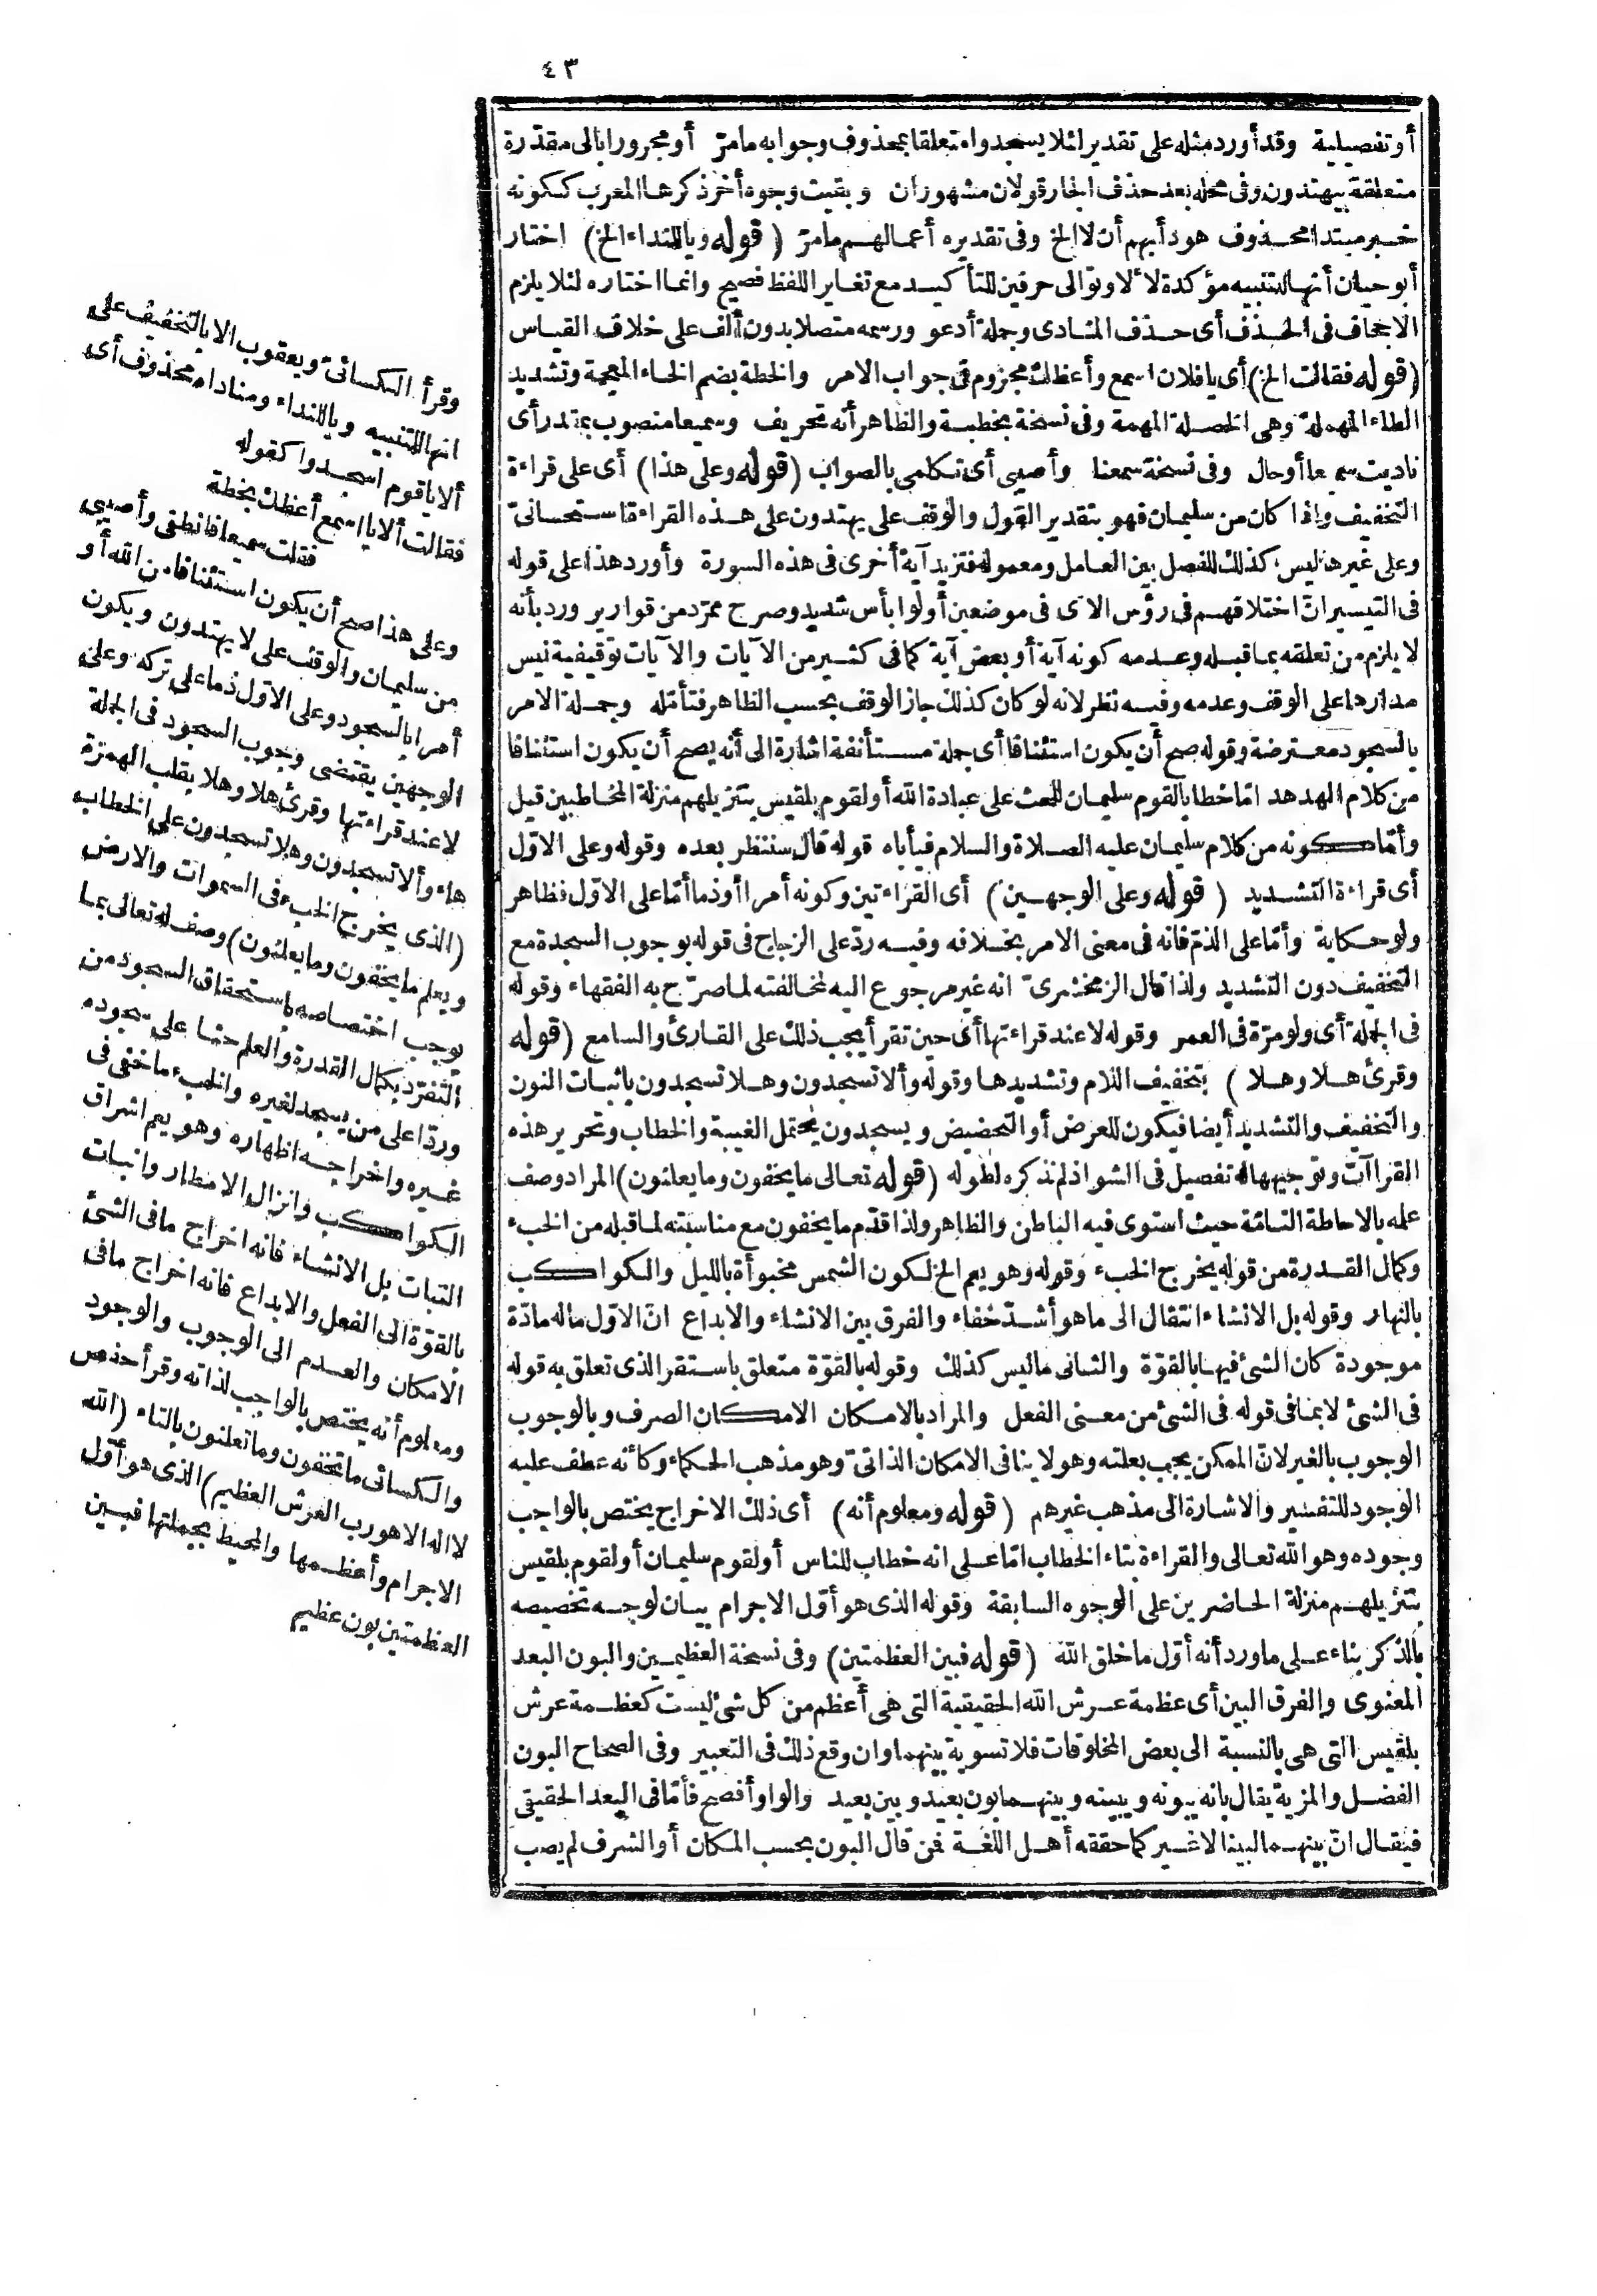 ٤٣
أو تفصيلية وقد أورد مثله على تقدير لئلا يسجدوا متعلقا بمحذوف وجوابه ما مرّ أو مجرورا بالى مقدّرة
متعلقة بيهتدون وفى محله بعد حذف الجار قولان مشهوران وبقيت وجوه أخر ذكرها المعرب ككونه
خبر مبتدا محذوف هو دأبهم أن لا الخ وفى تقديره أعمالهم ما مرّ (قوله ويا للنداء الخ) اختار
أبو حيان أنها للتنبيه مؤكدة لألا وتوالى حرفين للتأكيد مع تغاير اللفظ فصيح وانما اختاره لئلا يلزم
الاجحاف فى الحذف أى حذف المنادى وجملة أدعو ورسمه متصلا بدون ألف على خلاف القياس
(قوله فقالت الخ) أى يا فلان اسمع وأعظك مجزوم فى جواب الامر والخطة بضم الخاء المعجمة وتشديد
الطاء المهملة وهى الخصلة المهمة وفى نسخة بخطبة والظاهر أنه تحريف وسميعا منصوب بمقدر أى
ناديت سميعا أو حال وفى نسخة سمعنا وأصيبى أى تكلمى بالصواب (قوله وعلى هذا) أى على قراءة
التخفيف واذا كان من سليمان فهو بتقدير القول والوقف على يهتدون على هذه القراءة استحسانىّ
وعلى غيرها ليس كذلك للفصل بين العامل ومعموله فتزيد آية أخرى فى هذه السورة وأورد هذا على قوله
فى التيسير انّ اختلافهم فى رؤس الآى فى موضعين أولوا بأس شديد وصرح ممرّد من قوارير وردّ بأنه
لا يلزم من تعلقه بما قبله وعدمه كونه آية أو بعض آية كما فى كثير من الآيات والآيات توقيفية ليس
مدارها على الوقف وعدمه وفيه نظر لانه لو كان كذلك جاز الوقف بحسب الظاهر فتأمّله وجملة الامر
بالسجود معترضة وقوله صح أن يكون استئنافا أى جملة مستأنفة اشارة الى أنه يصح أن يكون استئنافا
من كلام الهدهد امّا خطابا لقوم سليمان للحث على عبادة الله أو لقوم بلقيس بتنزيلهم منزلة المخاطبين قيل
وأمّا كونه من كلام سليمان عليه الصلاة والسلام فيأباه قوله قال سننظر بعده وقوله وعلى الاوّل
أى قراءة التشديد (قوله وعلى الوجهين) أى القراءتين وكونه أمرا أو ذما أمّا على الاوّل فظاهر
ولو حكاية وأمّا على الذمّ فانه فى معنى الامر بخلافه وفيه ردّ على الزجاج فى قوله بوجوب السجدة مع
التخفيف دون التشديد ولذا قال الزمخشرىّ انه غير مرجوع اليه لمخالفته لما صرّح به الفقهاء وقوله
فى الجملة أى ولو مرّة فى العمر وقوله لا عند قراءتها أى حين تقرأ يجب ذلك على القارئ والسامع (قوله
وقرئ هلا وهلا) بتخفيف اللام وتشديدها وقوله وألا تسجدون وهلا تسجدون باثبات النون
والتخفيف والتشديد أيضا فيكون للعرض أو التحضيض ويسجدون يحتمل الغيبة والخطاب وتحرير هذه
القراآت وتوجيهها له تفصيل فى الشواذ لم نذكره لطوله (قوله تعالى ما يخفون وما يعلنون) المراد وصف
علمه بالاحاطة التامّة حيث استوى فيه الباطن والظاهر ولذا قدّم ما يخفون مع مناسبته لما قبله من الخبء
وكمال القدرة من قوله يخرج الخبء وقوله وهو يعم الخ لكون الشمس مخبوأة بالليل والكواكب
بالنهار وقوله بل الانشاء انتقال الى ما هو أشدّ خفاء والفرق بين الانشاء والابداع انّ الاوّل ماله مادّة
موجودة كان الشئ فيها بالقوّة والثانى ما ليس كذلك وقوله بالقوّة متعلق باستقر الذى تعلق به قوله
فى الشئ لا بما فى قوله فى الشئ من معنى الفعل والمراد بالامكان الامكان الصرف وبالوجوب
الوجوب بالغير لانّ الممكن يجب بعلته وهو لا ينافى الامكان الذاتىّ وهو مذهب الحكماء وكأنه عطف عليه
الوجود للتفسير والاشارة الى مذهب غيرهم (قوله ومعلوم أنه) أى ذلك الاخراج يختص بالواجب
وجوده وهو الله تعالى والقراءة بتاء الخطاب امّا على انه خطاب للناس أو لقوم سليمان أو لقوم بلقيس
بتنزيلهم منزلة الحاضرين على الوجوه السابقة وقوله الذى هو أوّل الاجرام بيان لوجه تخصيصه
بالذكر بناء على ما ورد أنه أوّل ما خلق الله (قوله فبين العظمتين) وفى نسخة العظيمين والبون البعد
المعنوى والفرق البين أى عظمة عرش الله الحقيقية التى هى أعظم من كل شئ ليست كعظمة عرش
بلقيس التى هى بالنسبة الى بعض المخلوقات فلا تسوية بينهما وان وقع ذلك فى التعبير وفى الصحاح البون
الفضل والمزية يقال بانه يبونه ويبينه وبينهما بون بعيد وبين بعيد والواو أفصح فأمّا فى البعد الحقيقى
فيقال انّ بينهما لبينا لا غير كما حققه أهل اللغة فمن قال البون بحسب المكان أو الشرف لم يصب
وقرأ الكسائىّ ويعقوب الا بالتخفيف على
انها للتنبيه ويا للنداء ومناداه محذوف أى
ألا يا قوم اسجدوا كقوله
فقالت ألا يا اسمع أعظك بخطة
فقلت سميعا فانطقى وأصيبى
وعلى هذا صح أن يكون استئنافا من الله أو
من سليمان والوقف على لا يهتدون ويكون
أمرا بالسجود وعلى الاوّل ذما على تركه وعلى
الوجهين يقتضى وجوب السجود فى الجملة
لا عند قراءتها وقرئ هلا وهلا بقلب الهمزة
هاء وألا تسجدون وهلا تسجدون على الخطاب
(الذى يخرج الخبء فى السموات والارض
ويعلم ما يخفون وما يعلنون) وصف له تعالى بما
يوجب اختصاصه باستحقاق السجود من
التفرّد بكمال القدرة والعلم حثا على سجوده
وردّا على من يسجد لغيره والخبء ما خفى فى
غيره واخراجه اظهاره وهو يعم اشراق
الكواكب وانزال الامطار وانبات
النبات بل الانشاء فانه اخراج ما فى الشئ
بالقوّة الى الفعل والابداع فانه اخراج ما فى
الامكان والعدم الى الوجوب والوجود
ومعلوم أنه يختص بالواجب لذاته وقرأ حفص
والكسائى ما تخفون وما تعلنون بالتاء (الله
لا اله الا هو رب العرش العظيم) الذى هو أوّل
الاجرام وأعظمها والمحيط بجملتها فبين
العظمتين بون عظيم